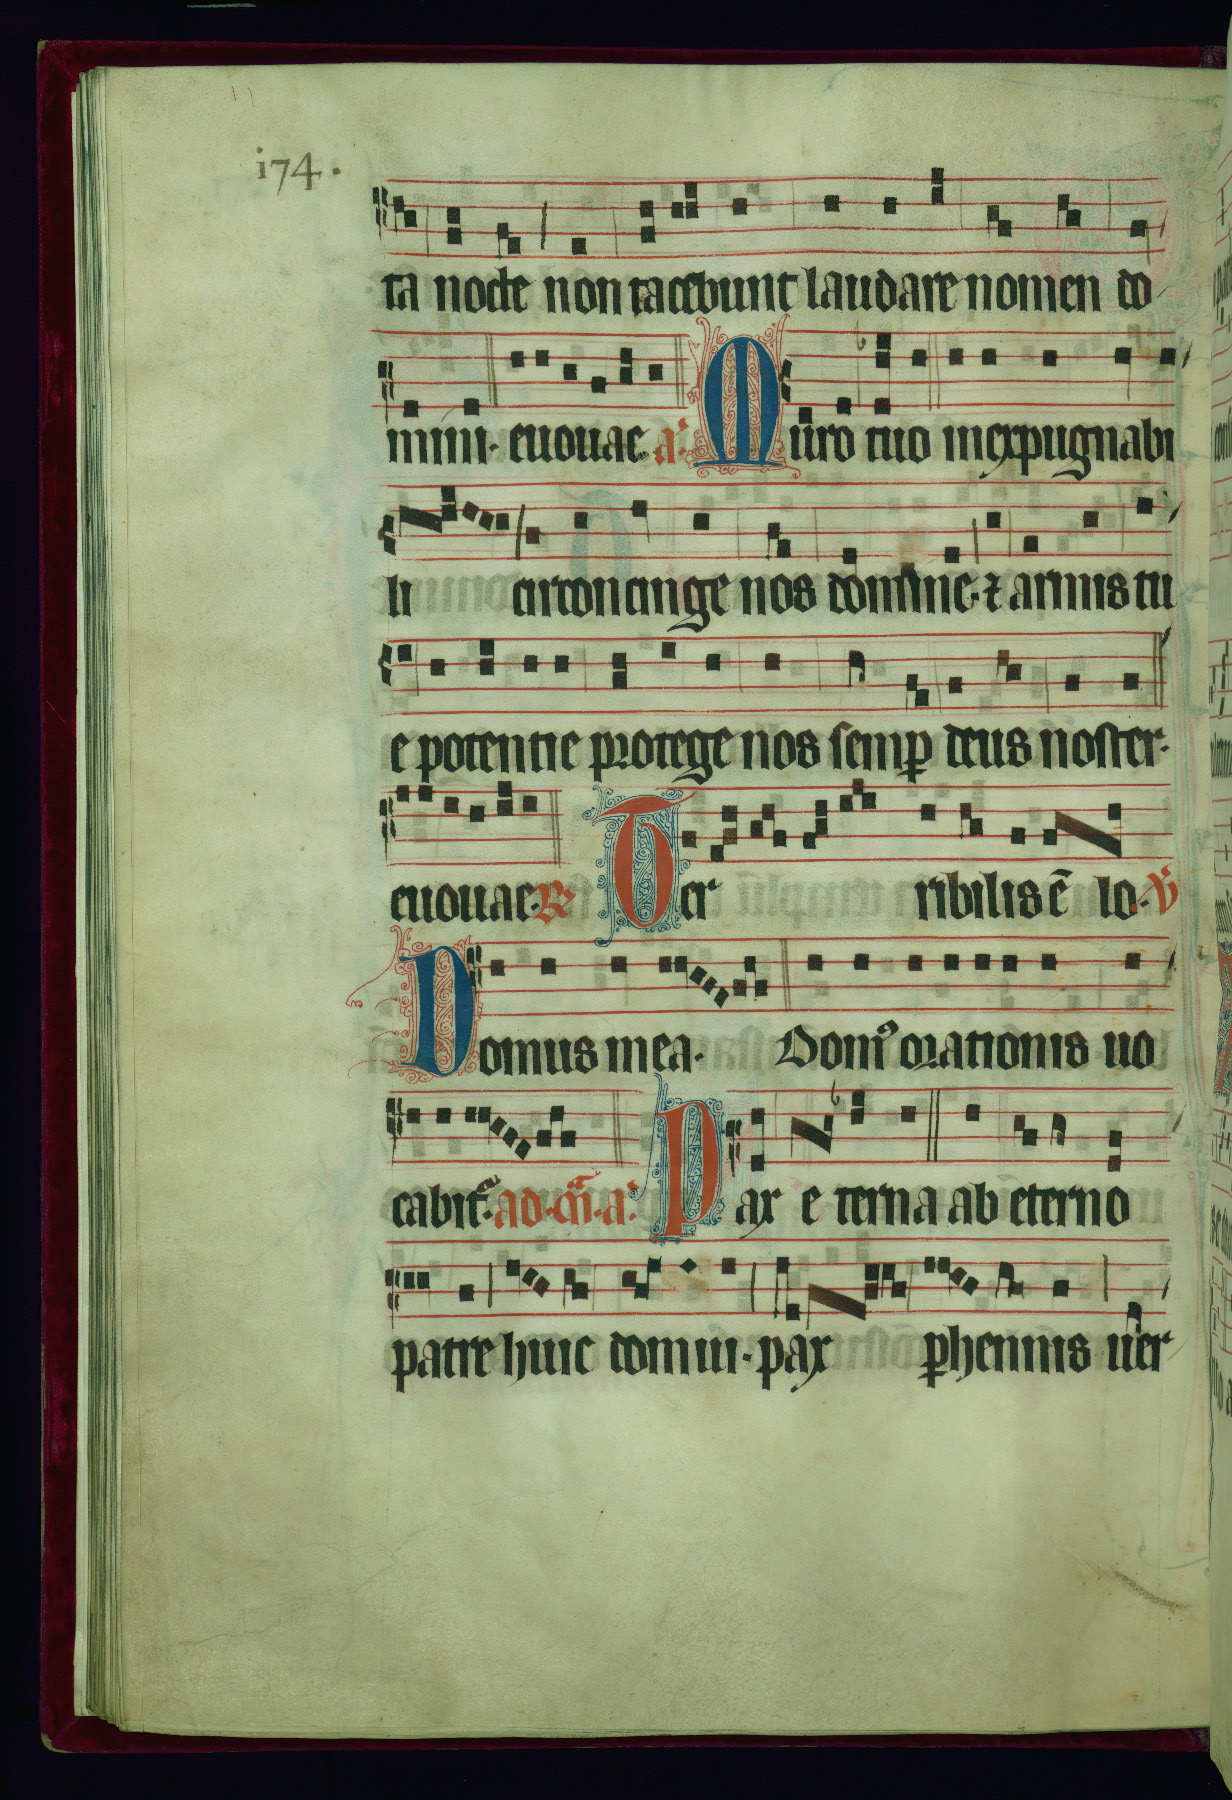 i74.
ta nocte non tacebunt laudare nomen do
mini. euouae a. Muro tuo inexpugnabi
li circoncinge nos domine. ⁊ armis tu
e potentie protege nos semꝑ deus noster.
euouae. ℟ Ter ribilis ē lo. ℣
Domus mea. Domꝰ orationis uo
cabit̃. ad. m̃. a. Pax e terna ab eterno
patre huic domui. pax ꝑhennis uer